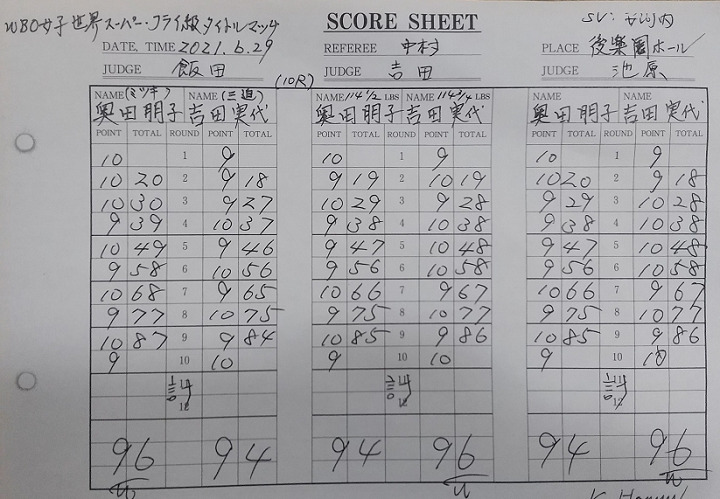 WBO女子世界スーパー・フライ級タイトルマッチ
SCORE SHEET
SV: 安河内
DATE, TIME 2021.6.29 REFEREE 中村 PLACE 後楽園ホール
JUDGE 飯田 (10R) JUDGE 吉田 JUDGE 池原
NAME (ミツキ) NAME (三迫) NAME 114 1/2 LBS NAME 114 3/4 LBS NAME NAME
奥田朋子 吉田実代 奥田朋子 吉田実代 奥田朋子 吉田実代
POINT TOTAL ROUND POINT TOTAL POINT TOTAL ROUND POINT TOTAL POINT TOTAL ROUND POINT TOTAL
10 1 9 10 1 9 10 1 9
10 20 2 9 18 9 19 2 10 19 10 20 2 9 18
10 30 3 9 27 10 29 3 9 28 9 29 3 10 28
9 39 4 10 37 9 38 4 10 38 9 38 4 10 38
10 49 5 9 46 9 47 5 10 48 9 47 5 10 48
9 58 6 10 56 9 56 6 10 58 9 56 6 10 58
10 68 7 9 65 10 66 7 9 67 10 66 7 9 67
9 77 8 10 75 9 75 8 10 77 9 75 8 10 77
10 87 9 9 84 10 85 9 9 86 10 85 9 9 86
9 10 10 9 10 10 9 10 10
計 計 計
12 12 12
96 94 94 96 94 96
W W W